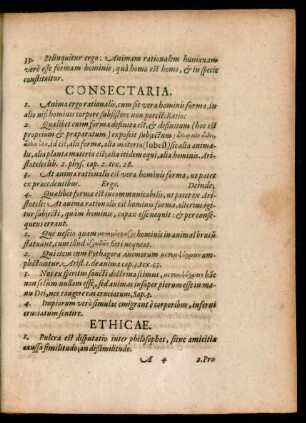 33. Relinquitur ergo: Animam rationalem humanam
verè esse formam hominis, quà homo est homo, & in specie
constituitur.
CONSECTARIA.
1. Anima ergo rationalis, cum sit vera hominis forma, in
alia nisi hominis corpore subsistere non potest: Ratio:
2. Quælibet enim forma definita est, & definitum (hoc est
proprium & præparatum) exposcit subjectum;
id est, alia forma, alia materia (subest) sic alia anima-
li, alia planta materia est; alia itidem equi, alia homini. Ari-
stoteles lib. 2. phys. cap. 2. tex. 28.
3. At anima rationalis est vera hominis forma, ut patet
ex præcedentibus. Ergo. Deinde;
4. Quælibet forma est incommunicabilis, ut patet ex Ari-
stotele: At anima rationalis est hominis forma, alterius igi-
tur subjecti, quàm hominis, capax esse nequit: & per conse-
quens errant.
1. Qui nescio quam hominis in animal brutum
statuunt, cum illud fieri nequeat.
2. Qui item cum Pythagora animarum am-
plectuntur. Arist. 1. de anima cap. 3. tex. 53.
3. Nos ex spiritus sancti doctrina scimus, hac
non solum nullam esse, sed animas insuper piorum esse in ma-
nu Dei, nec tangere eas cruciatum, Sap. 3.
4. Impiorum verò simulac emigrant è corporibus, inferni
cruciatum sentire.
ETHICAE.
1. Pulcra est disputatio inter philosophos, sitne amicitiæ
caussa similitudo, an dissimilitudo.
A 4 2. Pro